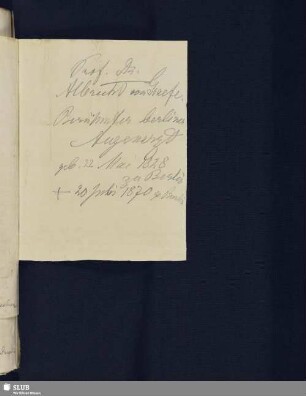 Prof. Dr.
Albrecht von Graefe.
Berühmter berliner
Augenarzt
geb. 22 Mai 1828
zu Berlin
+ 20 Juli 1870 z. Berlin
SLUB
Wir führen Wissen.